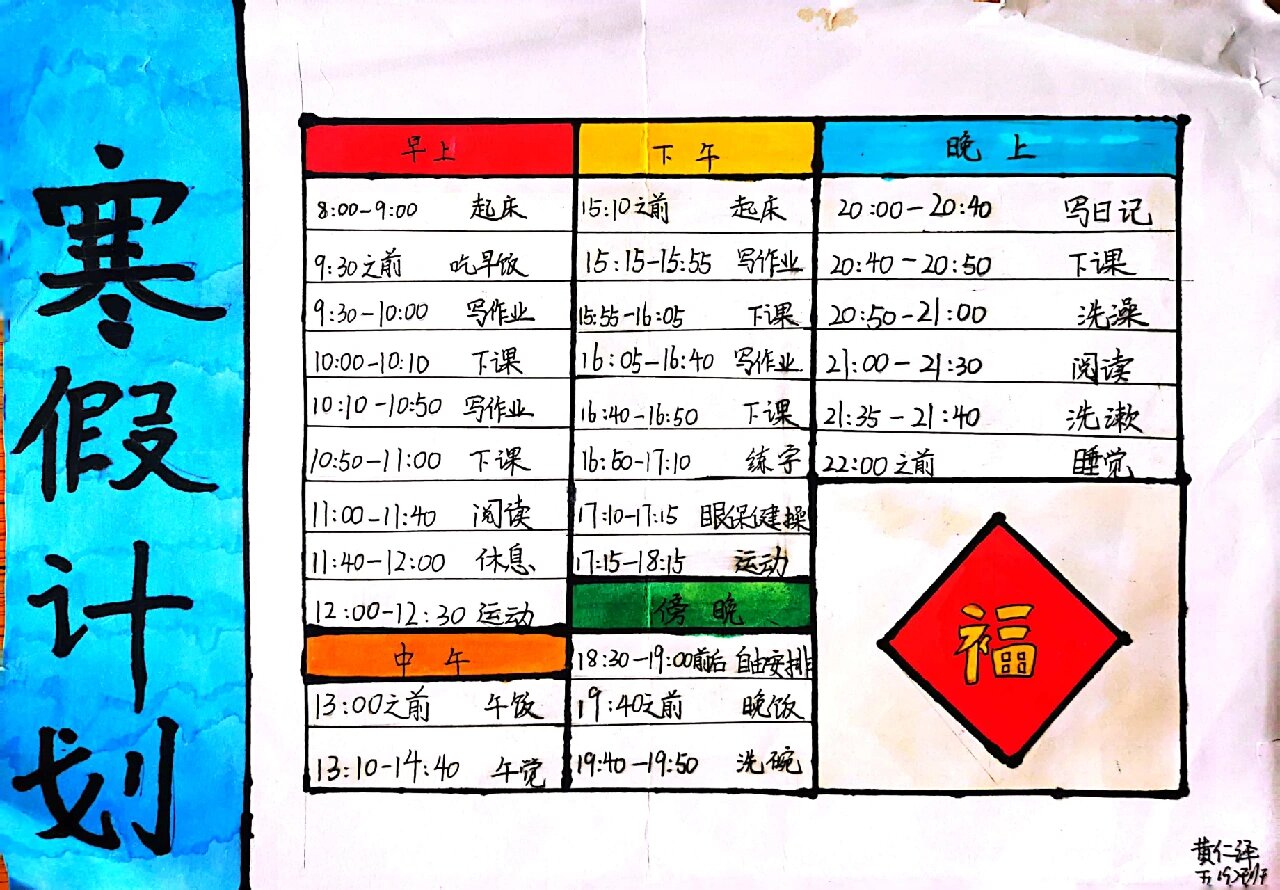 寒假计划
早上
8:00-9:00 起床
9:30之前 吃早饭
9:30-10:00 写作业
10:00-10:10 下课
10:10-10:50 写作业
10:50-11:00 下课
11:00-11:40 阅读
11:40-12:00 休息
12:00-12:30 运动
中午
13:00之前 午饭
13:10-14:40 午觉
下午
15:10之前 起床
15:15-15:55 写作业
15:55-16:05 下课
16:05-16:40 写作业
16:40-16:50 下课
16:50-17:10 练字
17:10-17:15 眼保健操
17:15-18:15 运动
傍晚
18:30-19:00前后 自由安排
19:40之前 晚饭
19:40-19:50 洗碗
晚上
20:00-20:40 写日记
20:40-20:50 下课
20:50-21:00 洗澡
21:00-21:30 阅读
21:35-21:40 洗漱
22:00之前 睡觉
福
黄仁译